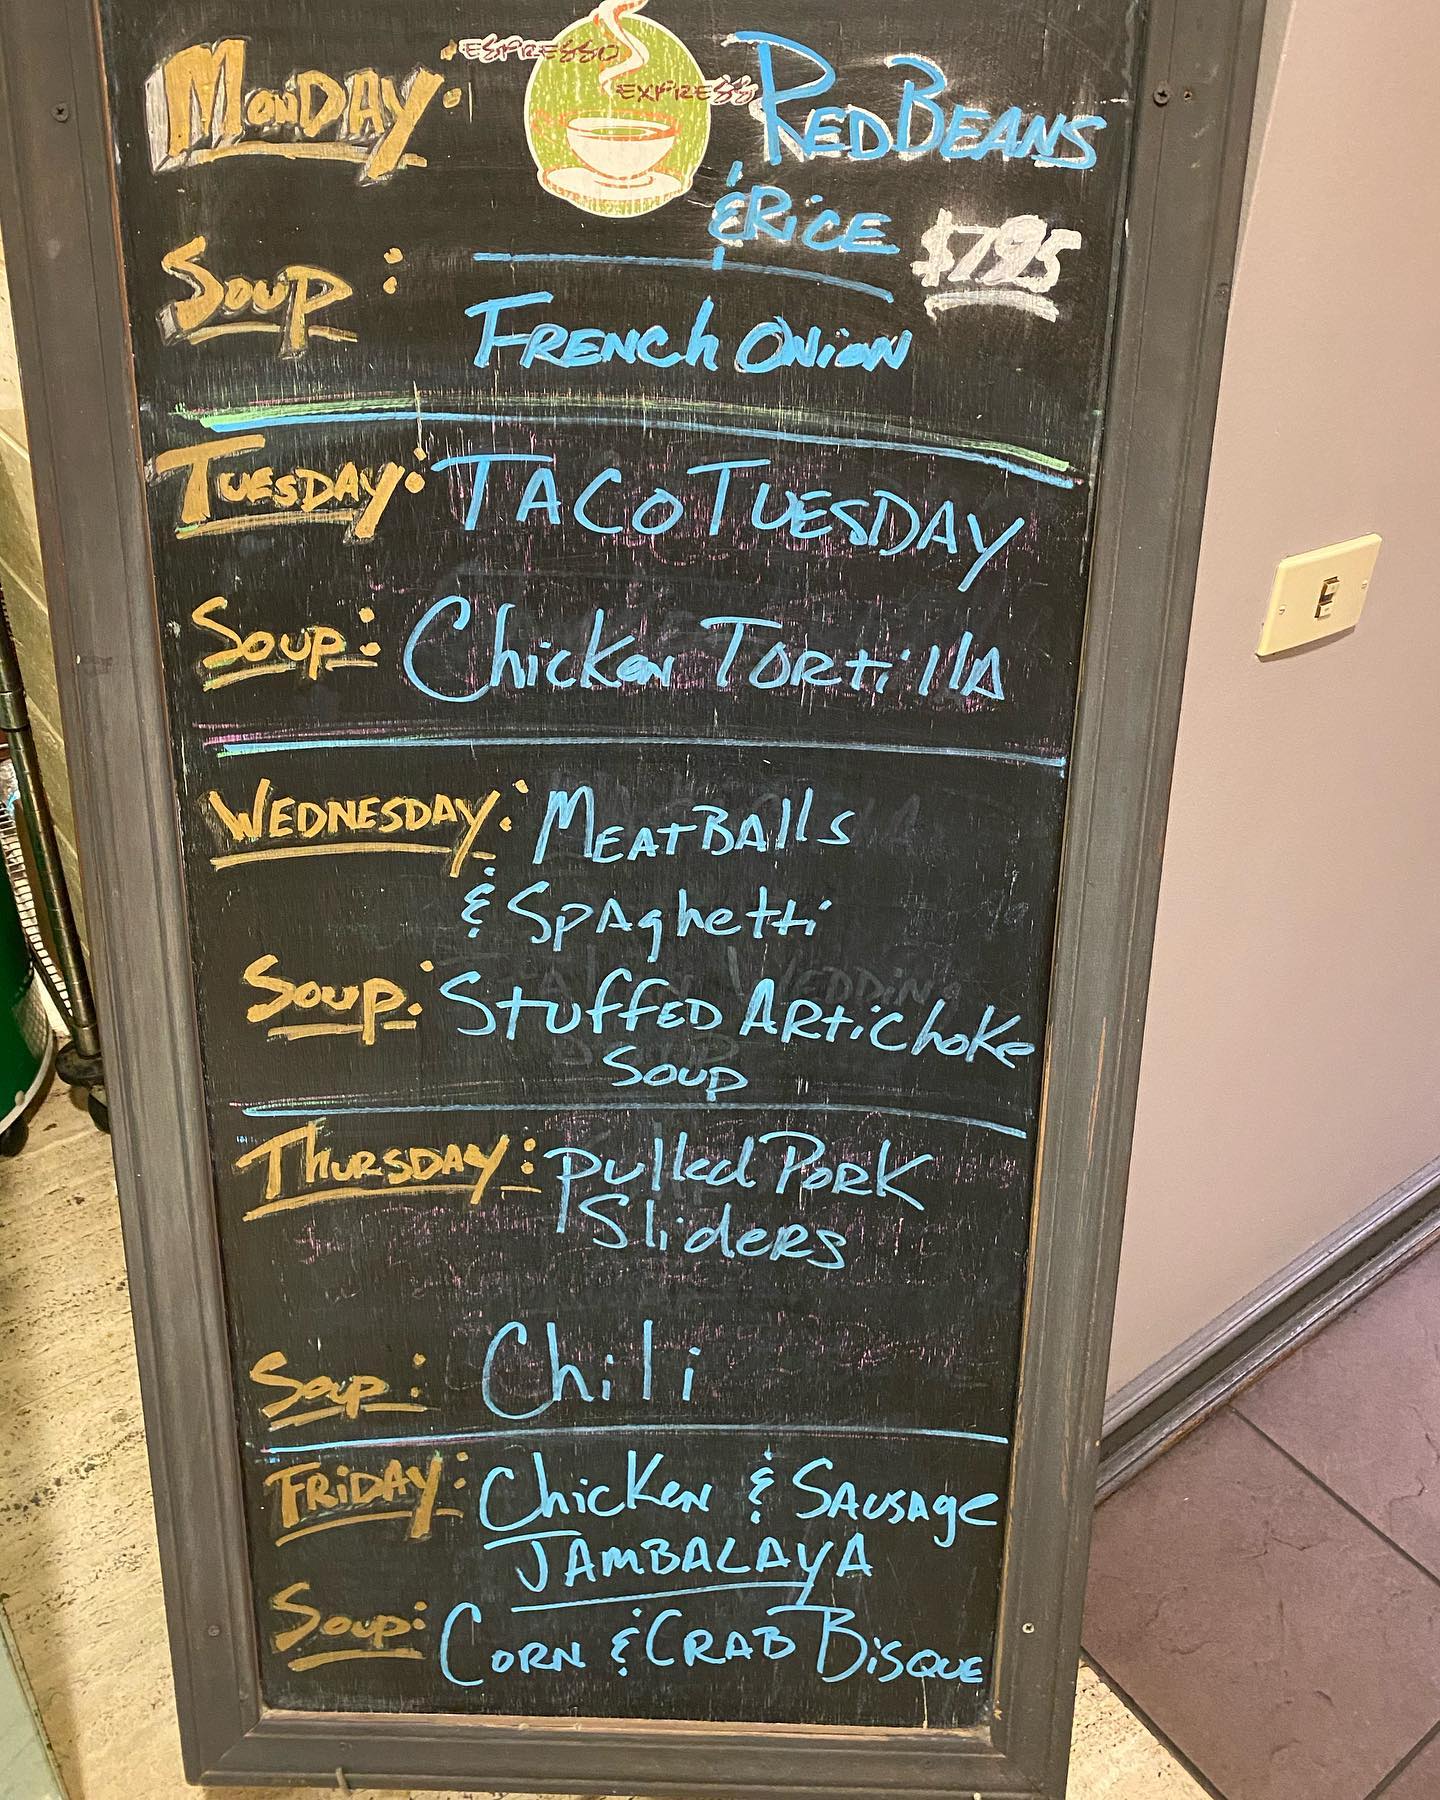 MONDAY:
ESPRESSO
EXPRESS
RED BEANS
& RICE
$7.95
SOUP:
FRENCh ONiON
TUESDAY: TACO TUESDAY
SOUP: ChickEN TORtillA
WEDNESDAY: MEATBAllS
& SpAghetti
SOUP: StuffED ARtiChoKe
SOUP
THURSDAY: pulled PORK
SlideRS
Soup: Chili
FRiDAY: ChicKEN & SAUSAge
JAMBALAYA
Soup: CORN & CRAB BiSQUE